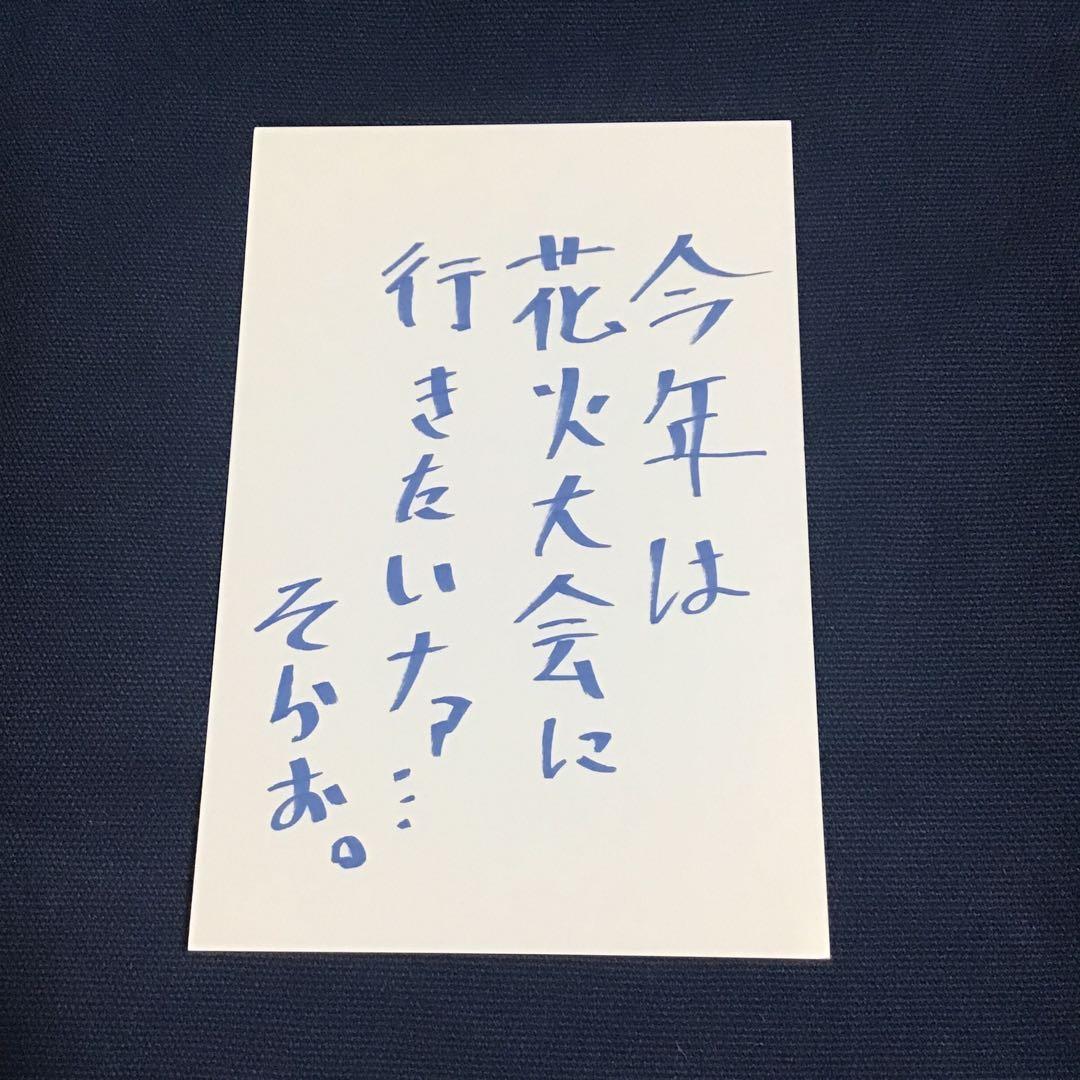 今年は
花火大会に
行きたいナァ…
そらお。